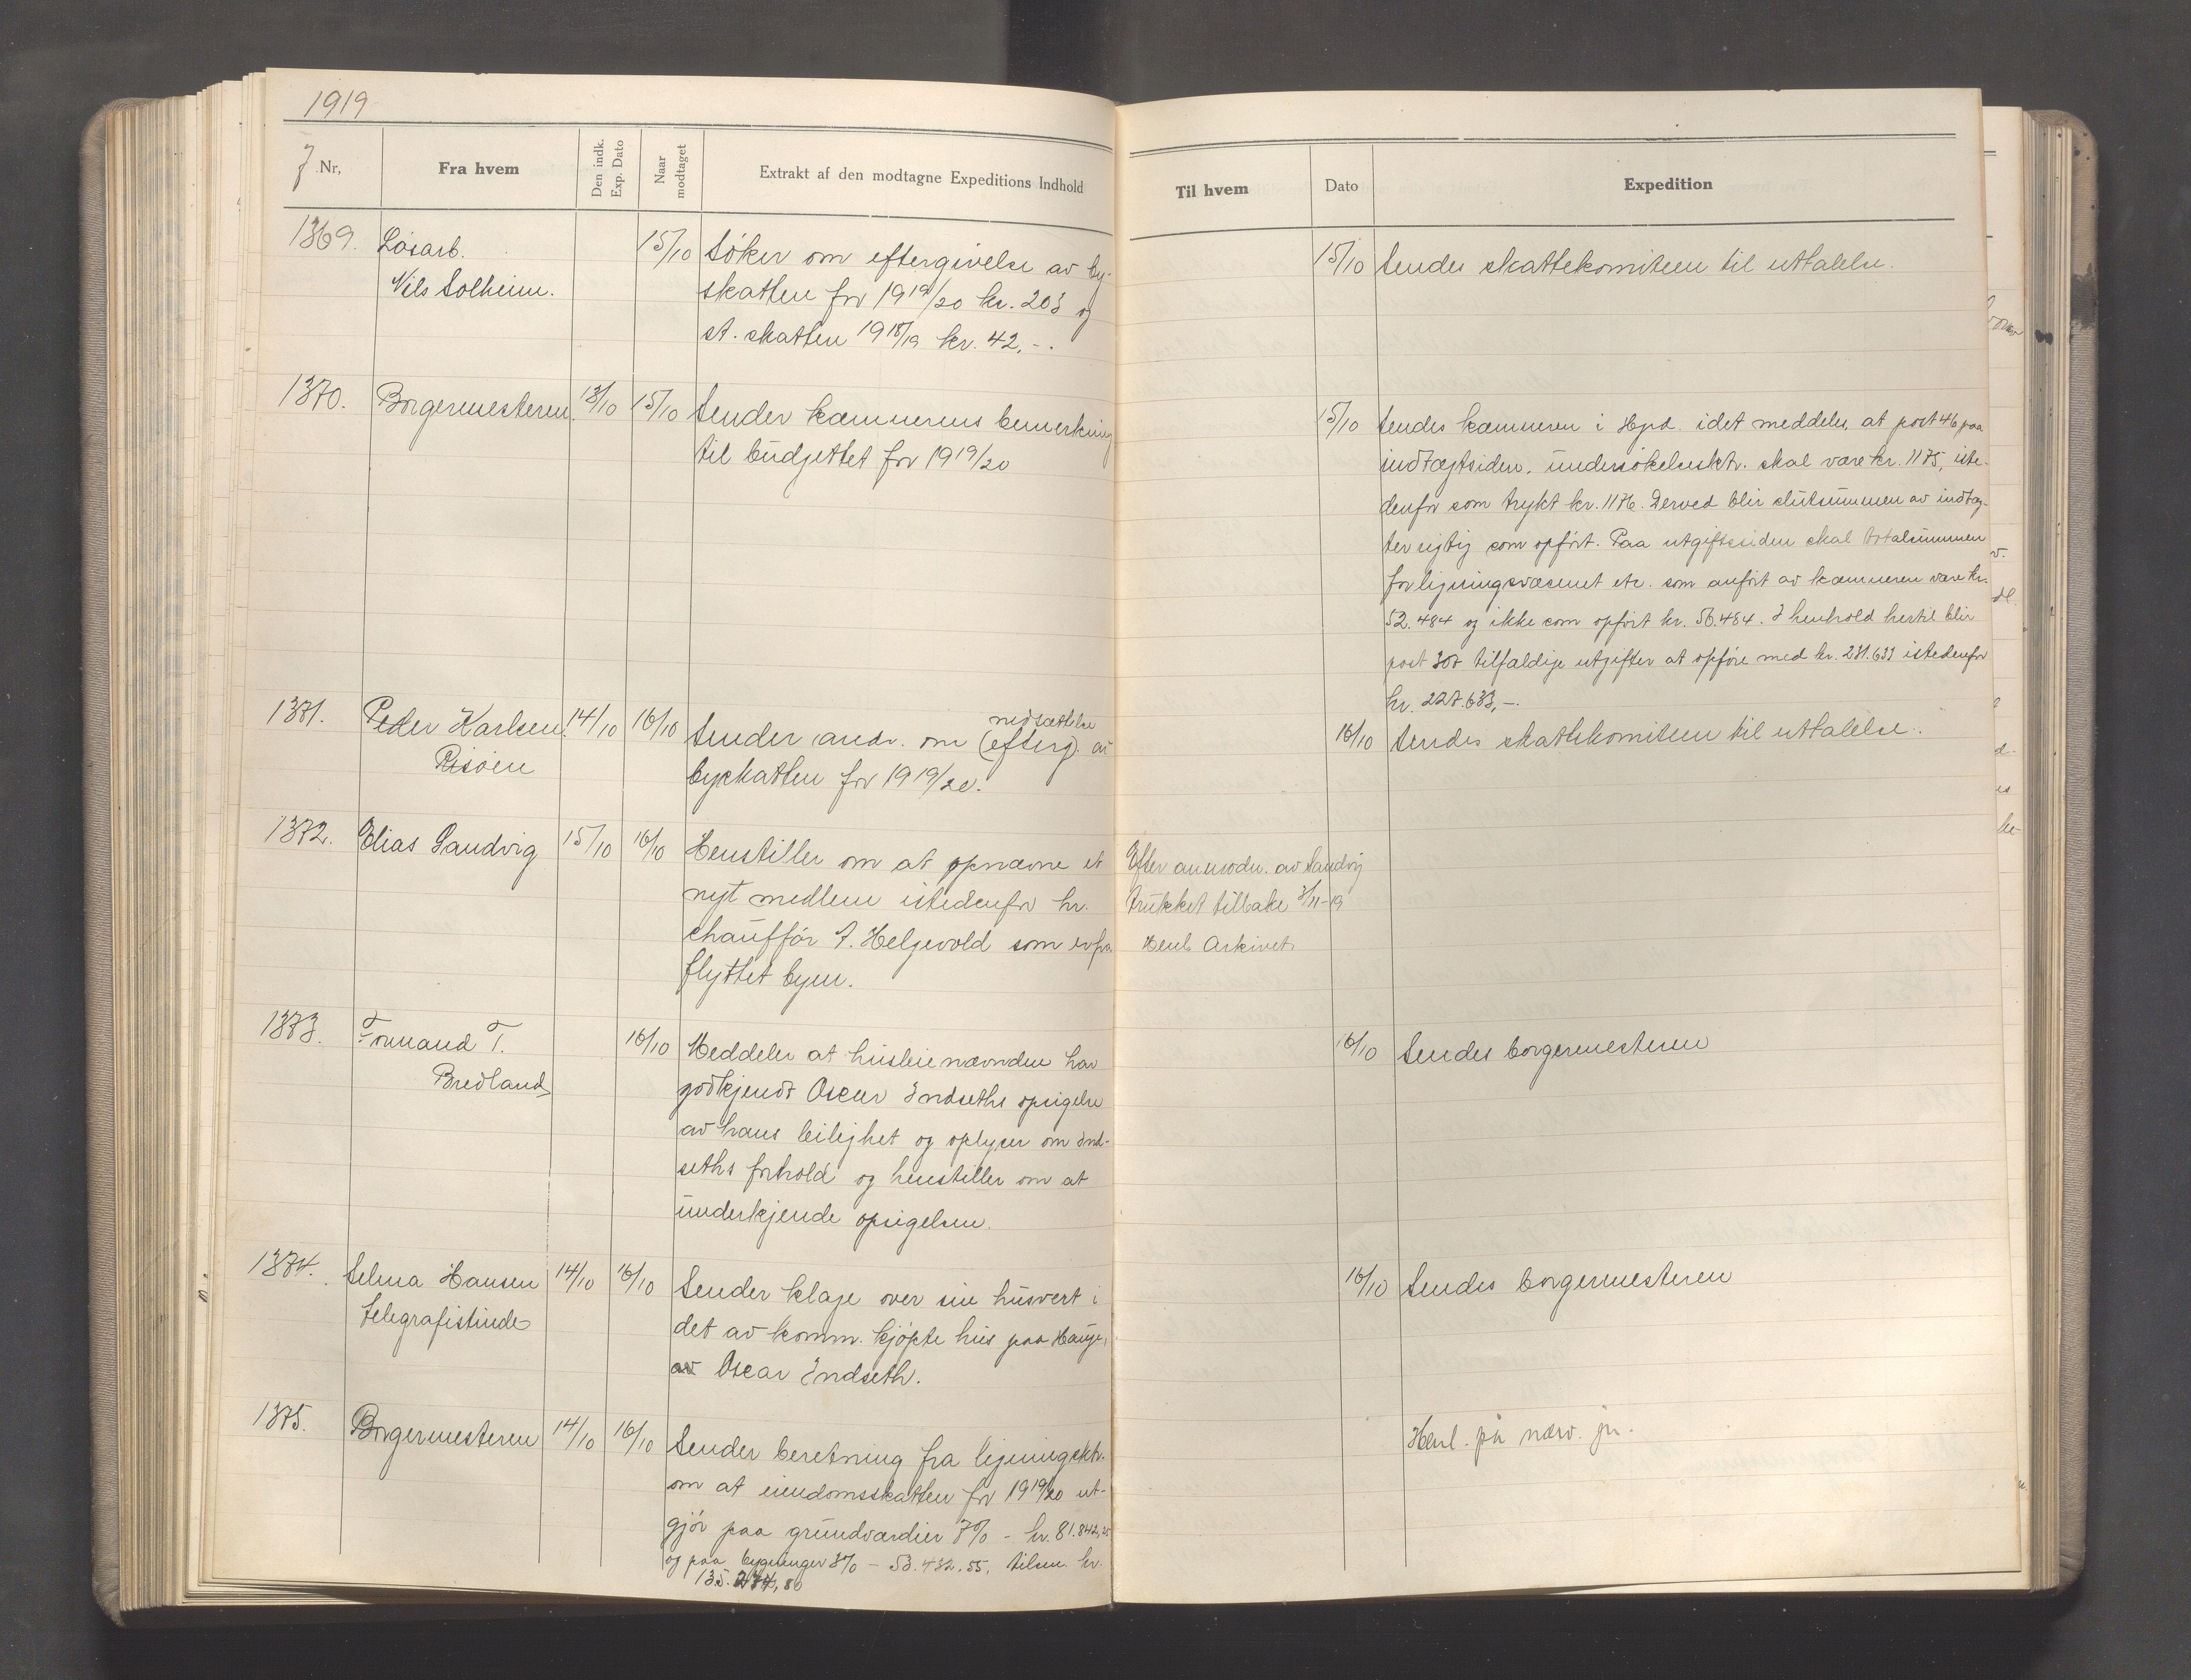 1919
J. Nr,
Fra hvem
Den indk. Exp. Dato
Naar modtaget
Extrakt af den modtagne Expeditions Indhold
Til hvem
Dato
Expedition
1369. Løsarb. 15/10 Søker om eftergivelse av by-
Nils Solheim. skatten for 1919/20 kr. 203 og
st. skatten 1918/19 kr. 42,-.
15/10 Sendes skattekomiteen til uttalelse.
1370. Borgermesteren. 13/10 15/10 Sender kæmnerens bemerkning
til budgettet for 1919/20
15/10 Sendes kæmneren i Hgsd. idet meddeles, at post 46 paa
indtægtsiden, undersøkelsesktr. skal være kr. 1175, iste-
denfor som trykt kr. 1176. Derved blir slutsummen av indtæg-
ter rigtig som opført. Paa utgiftssiden skal totalsummen
for ligningsvæsenet etc. som anført av kæmneren være kr.
52.484 og ikke som opført kr. 56.484. I henhold hertil blir
post 307 tilfældige utgifter at opføre med kr. 231.633 istedenfor
kr. 227.633,-.
1371. Peder Karlsen. 14/10 16/10 Sender andr. om (efterg). nedsættelse av
Risøen byskatten for 1919/20.
16/10 Sendes skattekomiteen til uttalelse.
1372. Elias Sandvig 15/10 16/10 Henstiller om at opnævne et
nyt medlem istedenfor hr.
chauffør T. Helgevold som er fra
flyttet byen.
Efter anmodn. av Sandvig
trukket tilbake 3/11-19
Henl. Arkivet.
1373. Formand T. 16/10 Meddeler at husleienævnden har
Bredland godkjendt Oscar Indseths opsigelse
av hans leilighet og oplyser om Ind-
seths forhold og henstiller om at
underkjende opsigelsen.
16/10 Sendes borgermesteren
1374. Selma Hansen 14/10 16/10 Sender klage over sin husvert i
telegrafistinde det av komm. kjøpte hus paa Hauge,
av Oscar Indseth.
16/10 Sendes borgermesteren
1375. Borgermesteren 14/10 16/10 Sender beretning fra ligningsktr.
om at eiendomsskatten for 1919/20 ut-
gjør paa grundværdier 7% - kr. 81.842,25
og paa bygninger 3% - 53.432.55, tilsm. kr.
135.274,80
Henl. på nærv. jn.